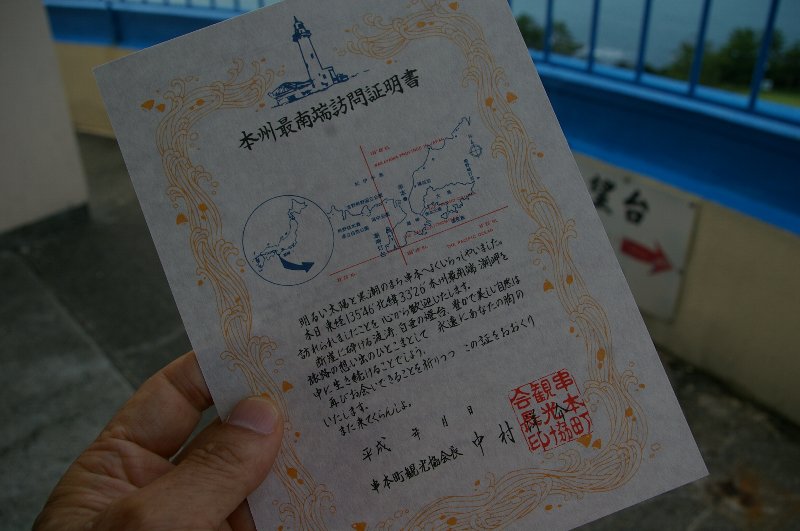 本州最南端訪問証明書
THE PACIFIC OCEAN
明るい太陽と黒潮のまち串本へよくいらっしゃいました。
本日 東経135°46′北緯33°26′本州最南端 潮岬を
訪れられましたことを心から歓迎いたします。
断崖に砕ける波涛 白亜の燈台、豊かで美しい自然は
旅路の想い出のひとこまとして 永遠にあなたの胸の
中に生き続けることでしょう。
再びお会いできることを祈りつつ この証をおおくり
いたします。
また来てくらんしょ。
平成 年 月 日
串本町観光協会長 中村
串本町観光協会
望台